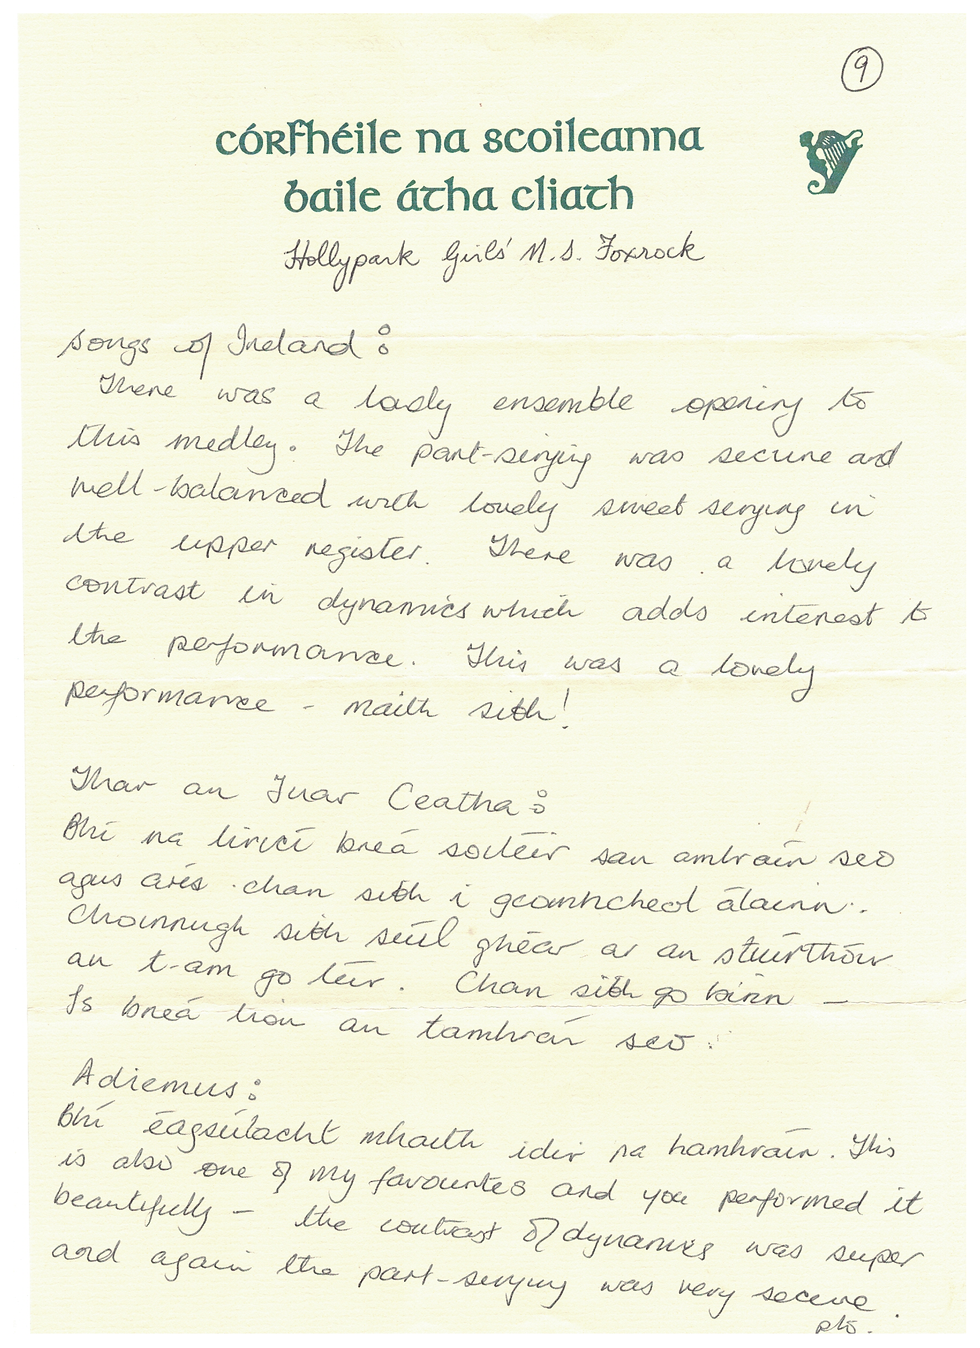 9
córfhéile na scoileanna
baile átha cliath
Hollypark Girls' N.S. Foxrock
Songs of Ireland:
There was a lovely ensemble opening to
this medley. The part-singing was secure and
well-balanced with lovely sweet singing in
the upper register. There was a lovely
contrast in dynamics which adds interest to
the performance. This was a lovely
performance - maith sibh!
Thar an Tuar Ceatha:
Bhí na liricí breá soiléir san amhráin seo
agus arís chan sibh i gcomhcheol álainn.
Choinnigh sibh súil ghéar ar an stiúrthóir
an t-am go léir. Chan sibh go binn -
Is breá liom an tamhrán seo.
Adiemus:
Bhí éagsúlacht mhaith idir na hamhráin. This
is also one of my favourites and you performed it
beautifully - the contrast of dynamics was super
and again the part-singing was very secure.
pto.